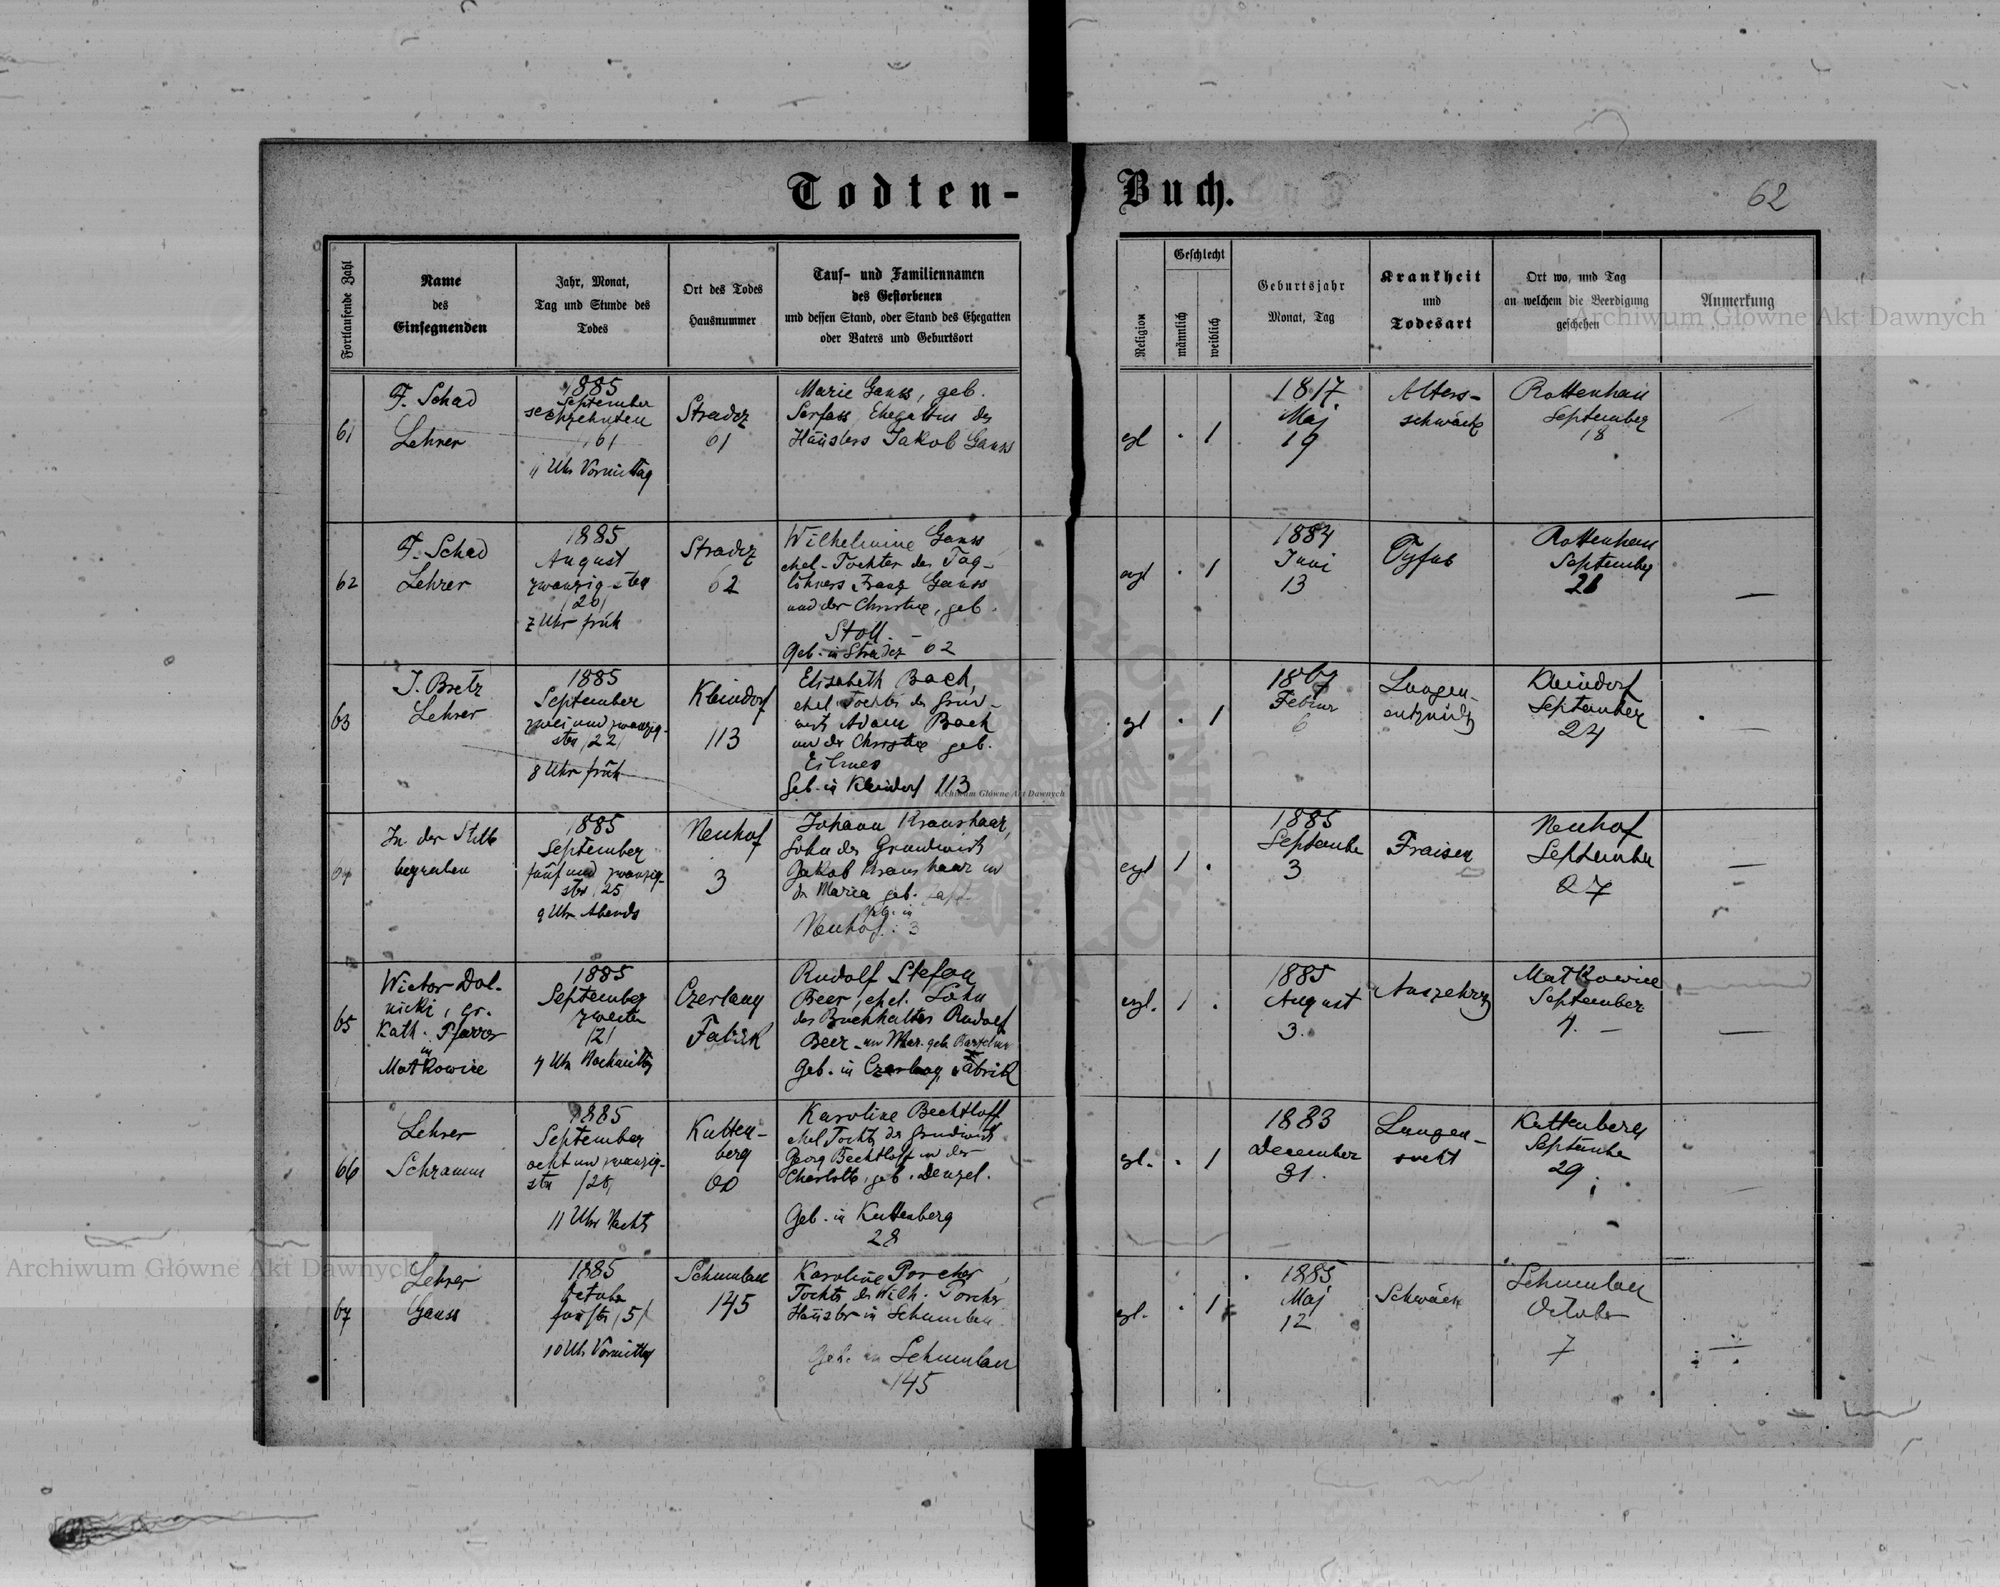 Todten-Buch.
62
Fortlaufende Zahl
Name
des
Einsegnenden
Jahr, Monat,
Tag und Stunde des
Todes
Ort des Todes
Hausnummer
Tauf- und Familiennamen
des Gestorbenen
und dessen Stand, oder Stand des Ehegatten
oder Vaters und Geburtsort
Religion
Geschlecht
männlich
weiblich
Geburtsjahr
Monat, Tag
Krankheit
und
Todesart
Ort wo, und Tag
an welchem die Beerdigung
geschehen
Anmerkung
Archiwum Główne Akt Dawnych
61
F. Schad
Lehrer
1885
September
sechzehnten
/16/
11 Uhr Vormittag
Stradcz
61
Marie Ganss, geb.
Serfass, Ehegattin des
Häuslers Jakob Ganss
egl
1
1817
Maj
19
Alters-
schwäche
Rottenhan
September
18
62
F. Schad
Lehrer
1885
August
zwanzigsten
/20/
7 Uhr früh
Stradcz
62
Wilhelmine Ganss
ehel. Tochter des Tag-
löhners Franz Ganss
und der Christine, geb.
Stoll. -
Geb. in Stradcz 62
evgl
1
1884
Juni
13
Tyfus
Rottenhan
September
63
J. Bretz
Lehrer
1885
September
zwei und zwanzig-
sten /22/
8 Uhr früh
Kleindorf
113
Elisabeth Bach,
ehel. Tochter des Grund-
wirts Adam Bach
und der Christine geb.
Geb. in Kleindorf 113
egl
1
Februar
6
Lungen-
entzündg
Kleindorf
September
24
In der Stille
begraben
1885
September
fünf und zwanzig-
sten /25
9 Uhr Abends
Neuhof
3
Johann Kraushaar,
Sohn des Grundwirts
Jakob Kraushaar und
der Maria geb.
geb. in
Neuhof. 3
evgl
1
1885
September
3
Fraisen
Neuhof
September
27
65
Wictor Dol-
nicki, gr.
Kath. Pfarrer
in
Matkowice
1885
September
zweiten
/2/
4 Uhr Nachmittg
Czerlany
Fabrik
Rudolf Stefan
Beer, ehel. Sohn
des Buchhalters Rudolf
Beer und Mar. geb.
Geb. in Czerlany, Fabrik
evgl.
1
1885
August
3.
Auszehrg
Matkowice
September
4.
66
Lehrer
Schramm
1885
September
acht und zwanzig-
sten /28/
11 Uhr Nachts
Kutten-
berg
Karoline Bechtloff
ehel Tocht. des Grundwirts
Georg Bechtloff und der
Charlotte, geb. Denzel.
Geb. in Kuttenberg
28
egl.
1
1883
December
31.
Lungen-
sucht
Kuttenberg
September
29
67
Lehrer
Ganss
1885
October
fünften /5/
10 Uhr Vormittag
Schumlau
145
Karoline Porcher,
Tochter des Wilh. Porcher
Häusler in Schumlau
Geb. in Schumlau
145
egl.
1
1885
Maj
12
Schwäche
Schumlau
October
7
Archiwum Główne Akt Dawnych
Archiwum Główne Akt Dawnych